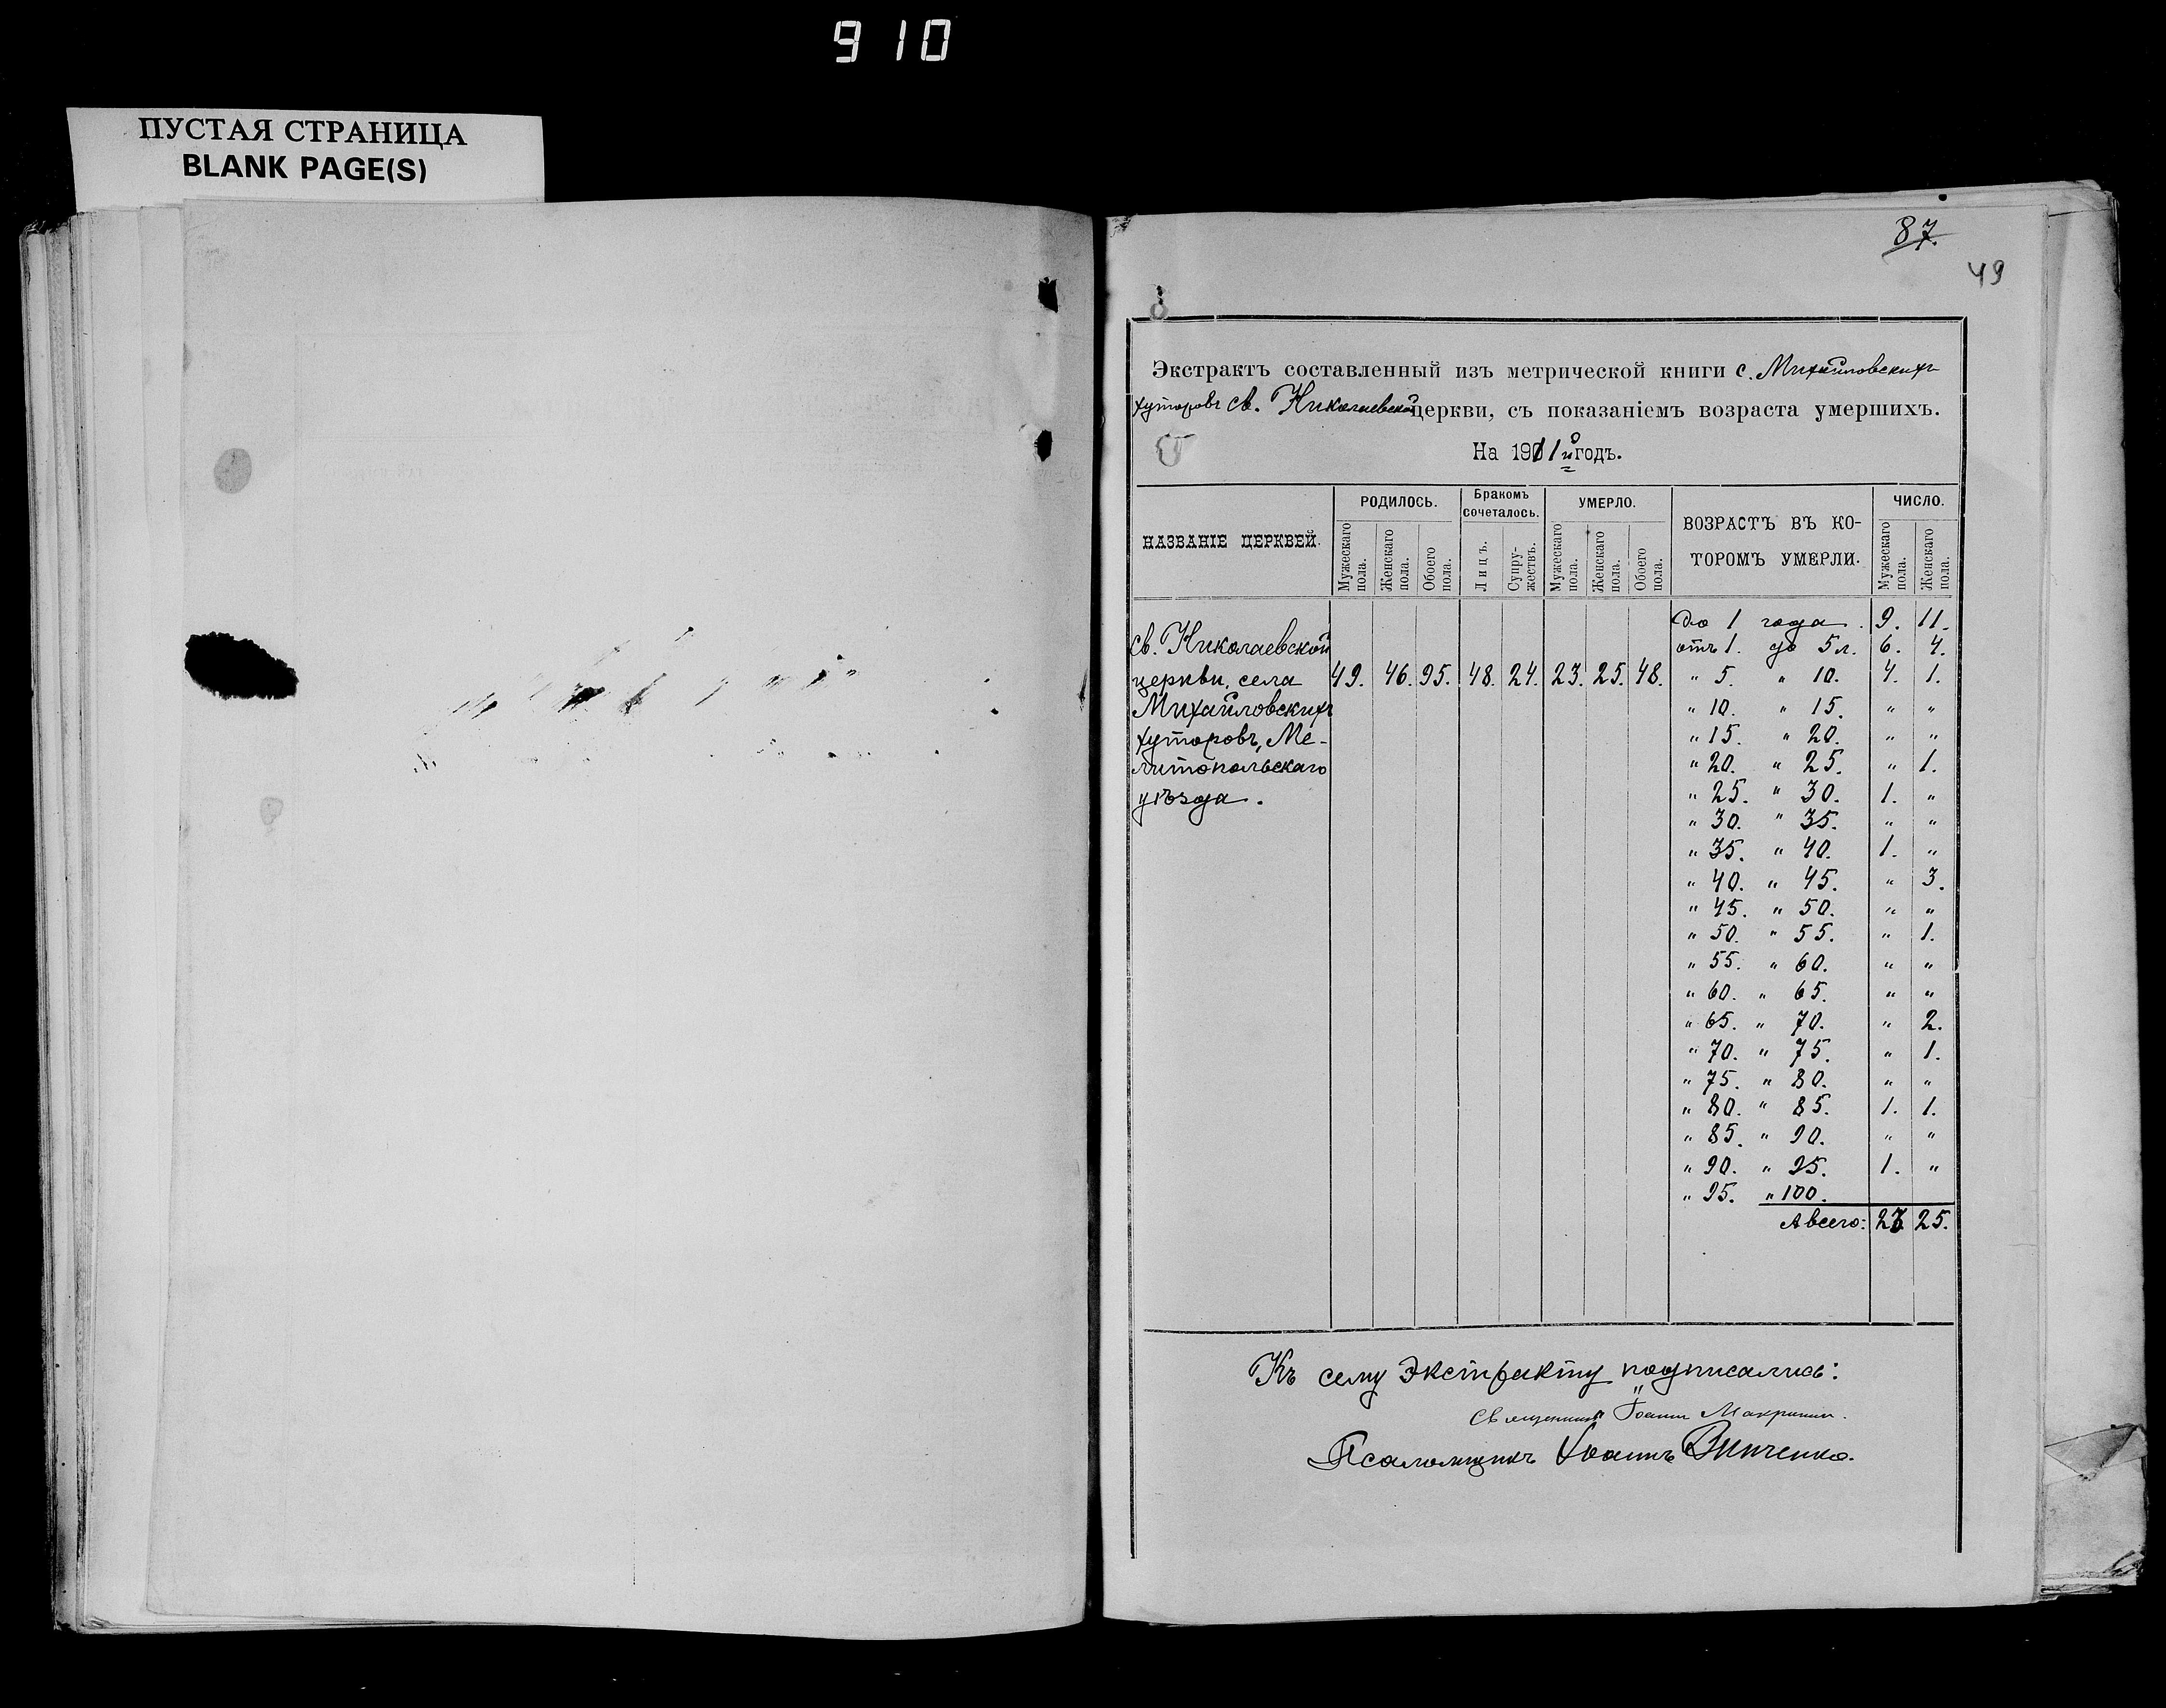 910
ПУСТАЯ СТРАНИЦА
BLANK PAGE(S)
87.
49
Экстрактъ составленный изъ метрической книги с. Михайловскихъ
хуторовъ св. Николаевской церкви, съ показаніемъ возраста умершихъ.
На 1911й годъ.
НАЗВАНІЕ ЦЕРКВЕЙ. РОДИЛОСЬ. Бракомъ сочеталось. УМЕРЛО. ВОЗРАСТЪ ВЪ КО-ТОРОМЪ УМЕРЛИ. ЧИСЛО.
Мужескаго пола. Женскаго пола. Обоего пола. Лицъ. Супру-жествъ. Мужескаго пола. Женскаго пола. Обоего пола. Мужескаго пола. Женскаго пола.
до 1 года. 9. 11.
св. Николаевской отъ 1. до 5 л. 6. 4.
церкви, села 49. 46. 95. 48. 24. 23. 25. 48. " 5. " 10. 4. 1.
Михайловскихъ " 10. " 15. " "
хуторовъ, Ме- " 15. " 20. " "
литопольскаго " 20. " 25. " 1.
уѣзда. " 25. " 30. 1. "
" 30. " 35. " "
" 35. " 40. 1. "
" 40. " 45. " 3.
" 45. " 50. " "
" 50. " 55. " 1.
" 55. " 60. " "
" 60. " 65. " "
" 65. " 70. " 2.
" 70. " 75. " 1.
" 75. " 80. " "
" 80. " 85. 1. 1.
" 85. " 90. " "
" 90. " 95. 1. "
" 95. " 100.
А всего: 23 25.
Къ сему экстракту подписались:
Священникъ Іоаннъ Макринин.
Псаломщикъ Іоаннъ Зинченко.